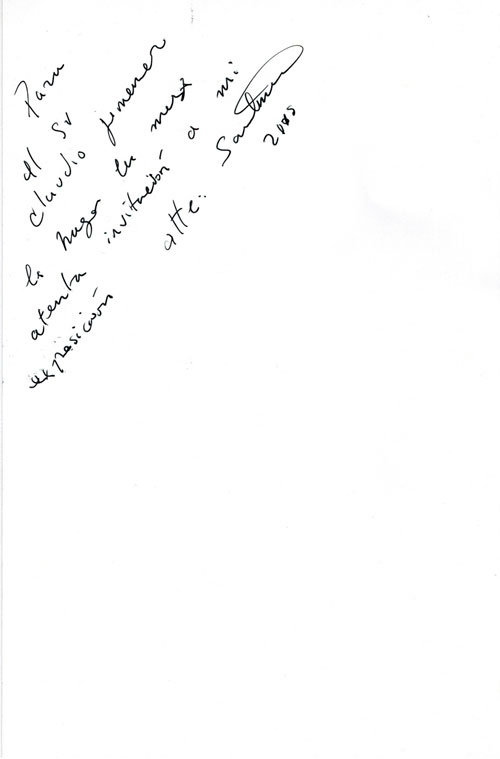 Para
al Sr
Claudio Jimenez
le hago la mas
atenta invitación a mi
exposición
atte: